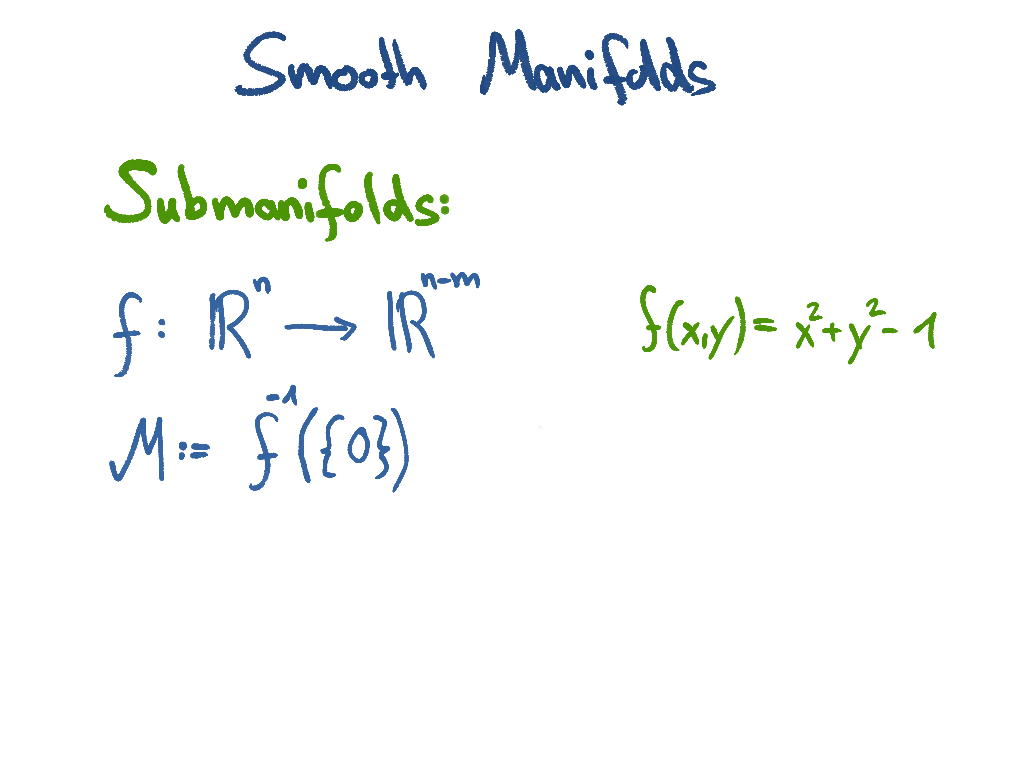 Smooth Manifolds
Submanifolds:
f: ℝⁿ → ℝⁿ⁻ᵐ
f(x,y) = x² + y² - 1
M := f⁻¹({0})